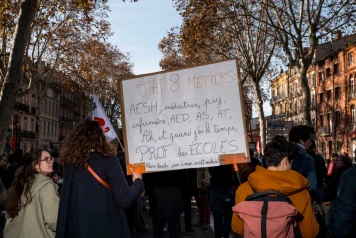 J'AI 8 METIERS:
AESH, médiatrice, psy,
infirmière, AED, AS, AT,
Ah, et quand j'ai le temps,
PROF des ECOLES